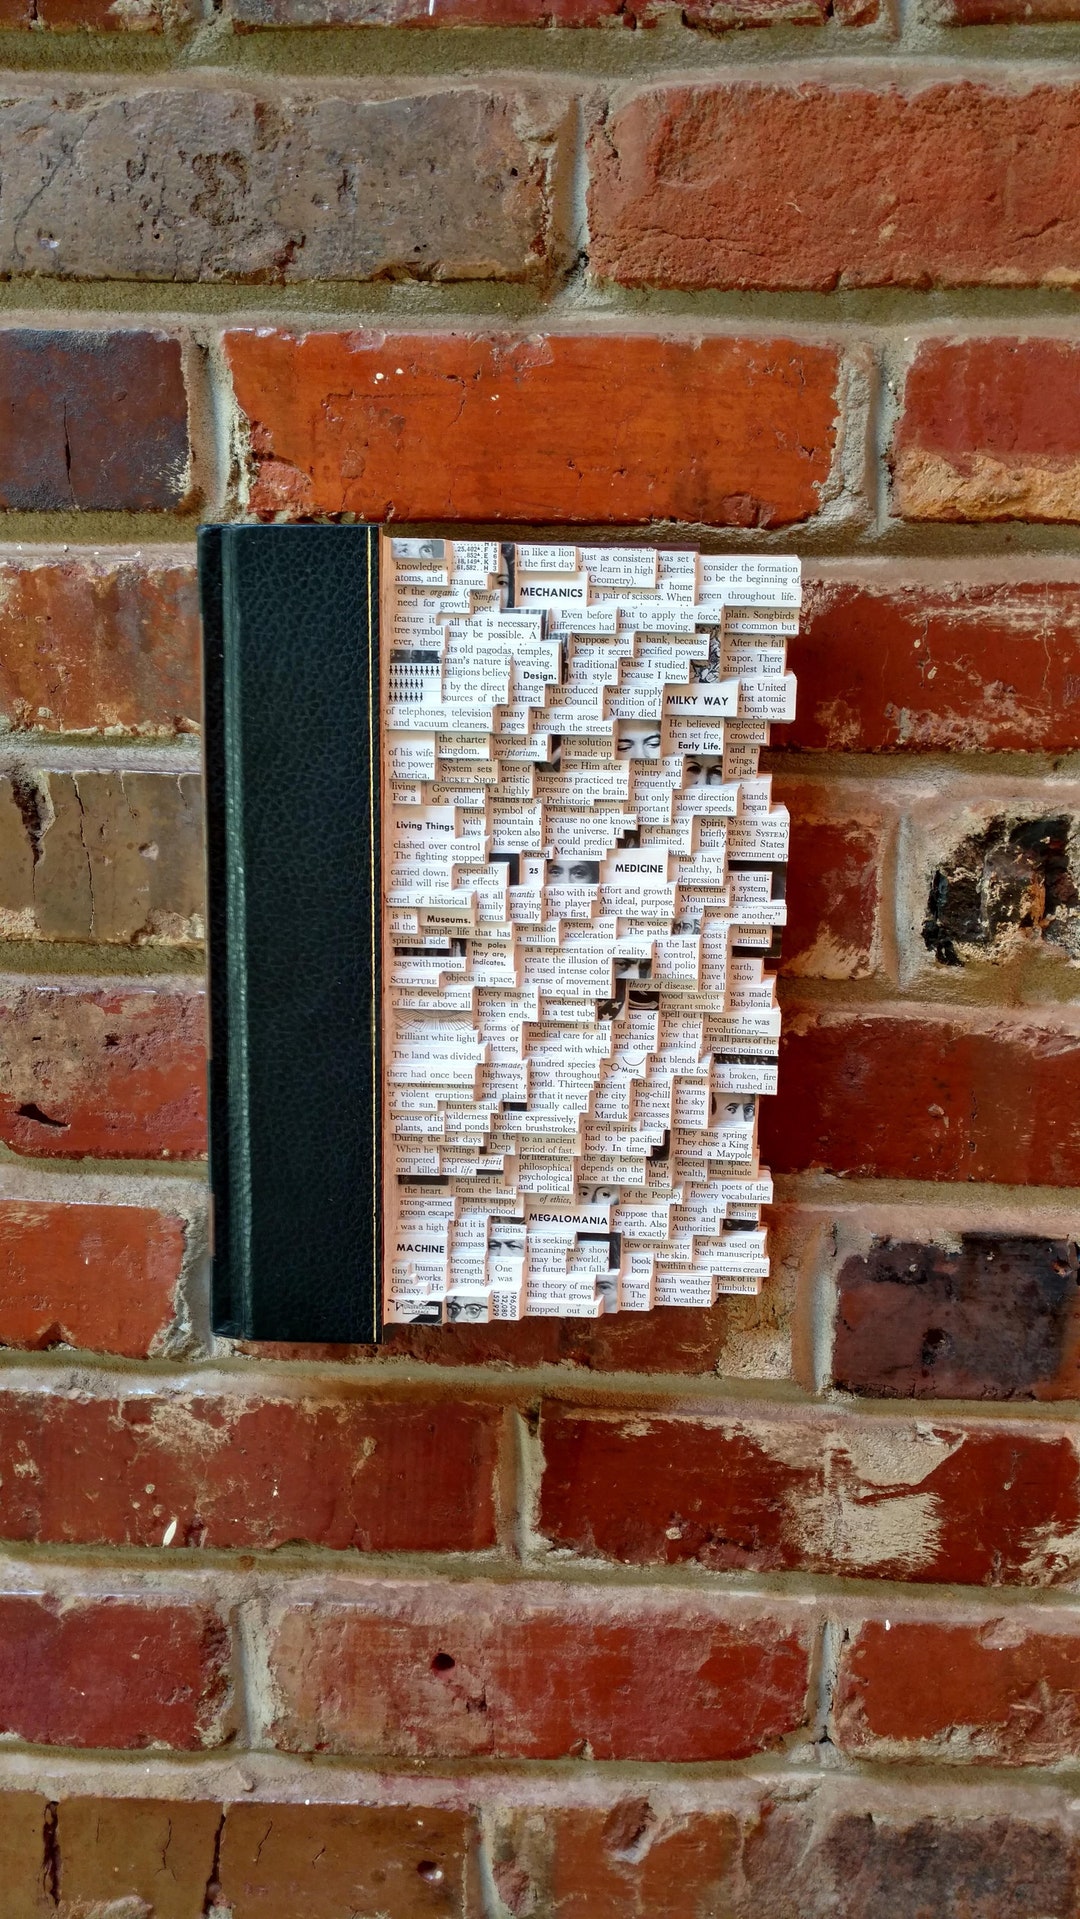 knowledge
atoms, and
of the organic
need for growth
25,402
.852
18,149
61,582
manure.
Simple
poet,
in like a lion
the first day
MECHANICS
just as consistent
we learn in high
Geometry).
was set
Liberties
at home
a pair of scissors. When
consider the formation
to be the beginning of
green throughout life.
feature it
tree symbol
ever, there
all that is necessary,
may be possible. A
Even before
differences had
But to apply the force,
must be moving.
plain. Songbirds
not common but
its old pagodas, temples,
man's nature is
religions believe
weaving.
Design.
Suppose you
keep it secret
a bank, because
specified powers.
After the fall
vapor. There
simplest kind
n by the direct
sources of the
change
attract
traditional
with style
cause I studied,
because I knew
introduced
the Council
water supply
condition of
Many died
MILKY WAY
the United
first atomic
bomb was
of telephones, television
and vacuum cleaners.
many
pages
The term arose
through the streets
He believed
then set free,
Early Life.
neglected
crowded
of his wife
the power
America,
the charter
kingdom.
worked in a
scriptorium.
the solution
is made up
and m
wings.
of jade
System sets
BUCKET SHOP
tone of
artistic
a highly
see Him after
surgeons practiced tre
pressure on the brain.
Prehistoric
equal to
wintry and
frequently
living
For a
Government
of a dollar
stands for
symbol of
mountain
spoken also
his sense of
sacred
what will happen
because no one knows
in the universe. If
he could predict
Mechanism
but only
important
stone is
same direction
slower speeds.
stands
began
Living Things
mind
with
laws
of changes
unlimited.
way
Spirit,
briefly
built A
System was cr
SERVE SYSTEM)
United States
government op
clashed over control
The fighting stopped
carried down.
child will rise
especially
the effects
25
MEDICINE
may have
healthy, he
depression
in the uni-
s system,
darkness.
kernel of historical
as all
family
genus
mantis
praying
usually
also with its
The player
plays first,
effort and growth
An ideal, purpose,
direct the way in
the extreme
Mountains
of the
love one another."
is in
all the
spiritual side
Museums.
simple life that has
are inside
a million
system, one
acceleration
The voice
The paths
costs i
most
some
many
have
for all
human
animals
sage with motion.
SCULPTURE
the poles
they are,
indicates.
objects in space,
as a representation of reality.
create the illusion of
he used intense color
a sense of movement
no equal in the
in the last
, control,
and polio
machines.
theory of disease.
earth.
show
was made
Babylonia
The development
of life far above all
Every magnet
broken in the
broken ends.
weakened
in a test tube
wood sawdust
fragrant smoke
brilliant white light
forms of
leaves or
letters,
requirement is that
medical care for all
the speed with which
use of
of atomic
mechanics
and other
spell out
The chief
view that
mankind
because he was
revolutionary—
in all parts of the
deepest points on
The land was divided
there had once been
man-made,
highways,
represent
plains
hundred species
grow throughout
world. Thirteen
or that it never
usually called
Mars
that blends
such as the fox
was broken, fire
which rushed in.
(2) recurrent storms
violent eruptions
of the sun.
ancient
the city
came to
Marduk
dehaired,
hog-chill
The next
carcasses
backs,
of sand.
swarms
the sky
swarms
comets.
because of its
plants, and
hunters stalk
wilderness
and ponds
outline expressively,
broken brushstrokes,
or evil spirits
had to be pacified
body. In time,
They sang spring
They chose a King
around a Maypole
During the last days
When he
competed
and killed
writings
expressed spirit
and life
in the
Deep
to an ancient
period of fast.
for literature.
philosophical
psychological
and political
the day before
depends on the
place at the end
War,
land.
tribes
elected
wealth,
in space.
magnitude
the heart.
acquired it.
from the land.
of ethics,
of the People).
French poets of the
flowery vocabularies
strong-armed
groom escape
plants supply
neighborhood
MEGALOMANIA
Suppose that
he earth. Also
is exactly
Through the
stones and
Authorities
gather
sensing
was a high
But it is
such as
compass
origins.
it is seeking
meaning
may be
the future
may show
he world. A
that falls
dew or rainwater
the skin.
leaf was used on
Such manuscripts
MACHINE
becomes
strength
as strong
book
born
within these patterns create
tiny
times
Galaxy.
human
works.
He
One
I, was
the theory of
thing that grows
dropped out of
to the
The
under
harsh weather
warm weather
cold weather
peak of its
Timbuktu
196,000
332,080
152,929